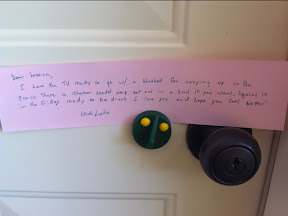 Dear Jessica,
I have the TV ready to go w/ a blanket for cozying up in the
There is chicken noodle soup set out in a bowl if you want. Squirt is
in the ready to be I love you and hope you feel better!
Love,